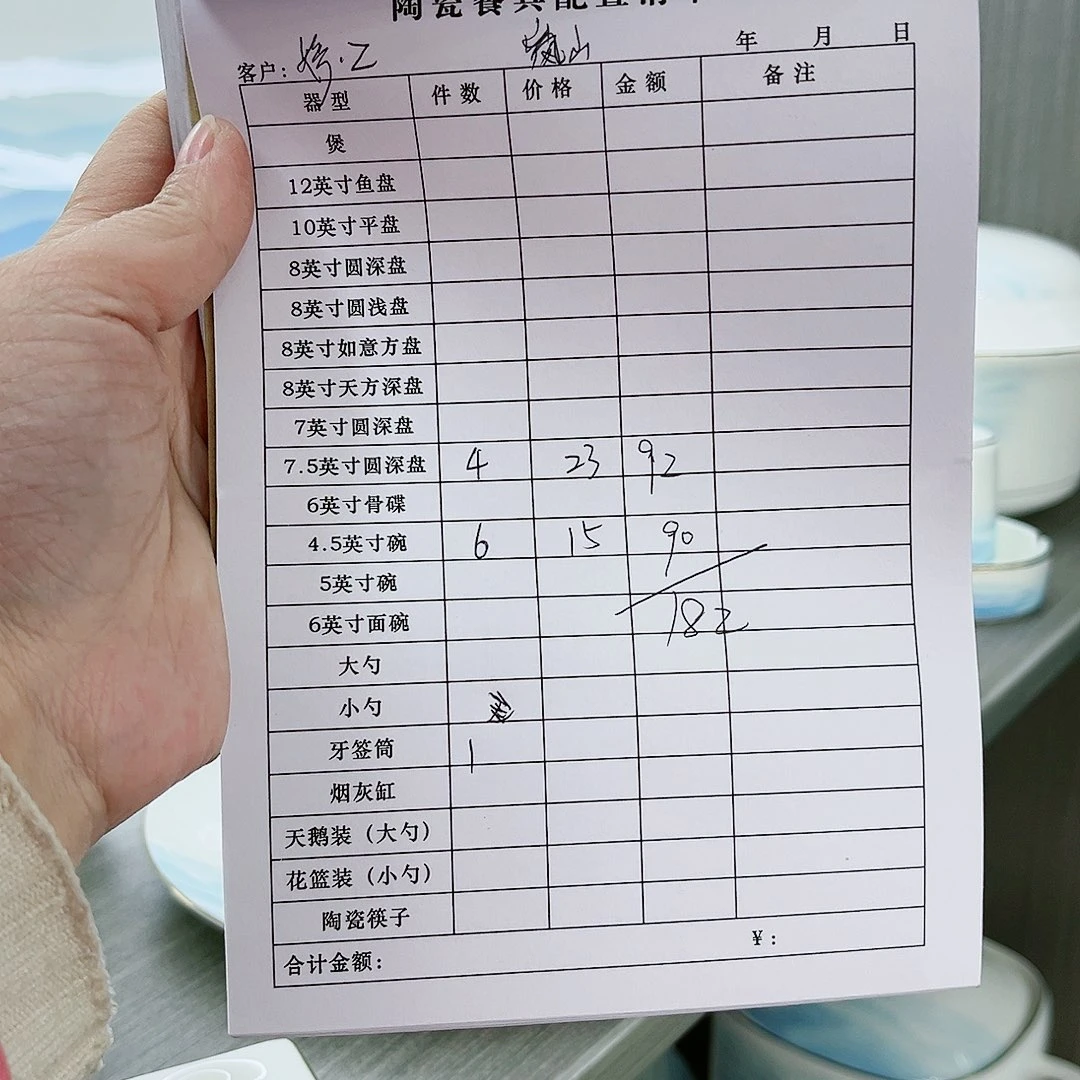 陶瓷餐具配置清单
客户： 年 月 日
器型 件数 价格 金额 备注
煲
12英寸鱼盘
10英寸平盘
8英寸圆深盘
8英寸圆浅盘
8英寸如意方盘
8英寸天方深盘
7英寸圆深盘
7.5英寸圆深盘 4 23 92
6英寸骨碟
4.5英寸碗 6 15 90
5英寸碗
6英寸面碗 182
大勺
小勺
牙签筒 1
烟灰缸
天鹅装（大勺）
花篮装（小勺）
陶瓷筷子
合计金额： ¥：